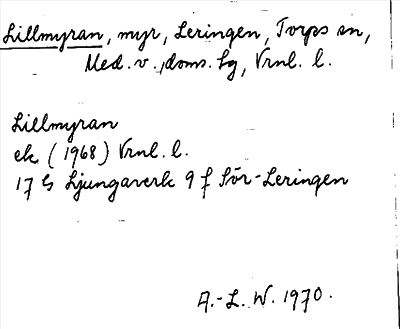 Lillmyran, myr, Leringen, Torps sn,
Med. v., doms. hg, Vrnl. l.
Lillmyran
ek (1968) Vrnl. l.
17 G Ljungaverk 9 f Sör-Leringen
A.-L. W. 1970.